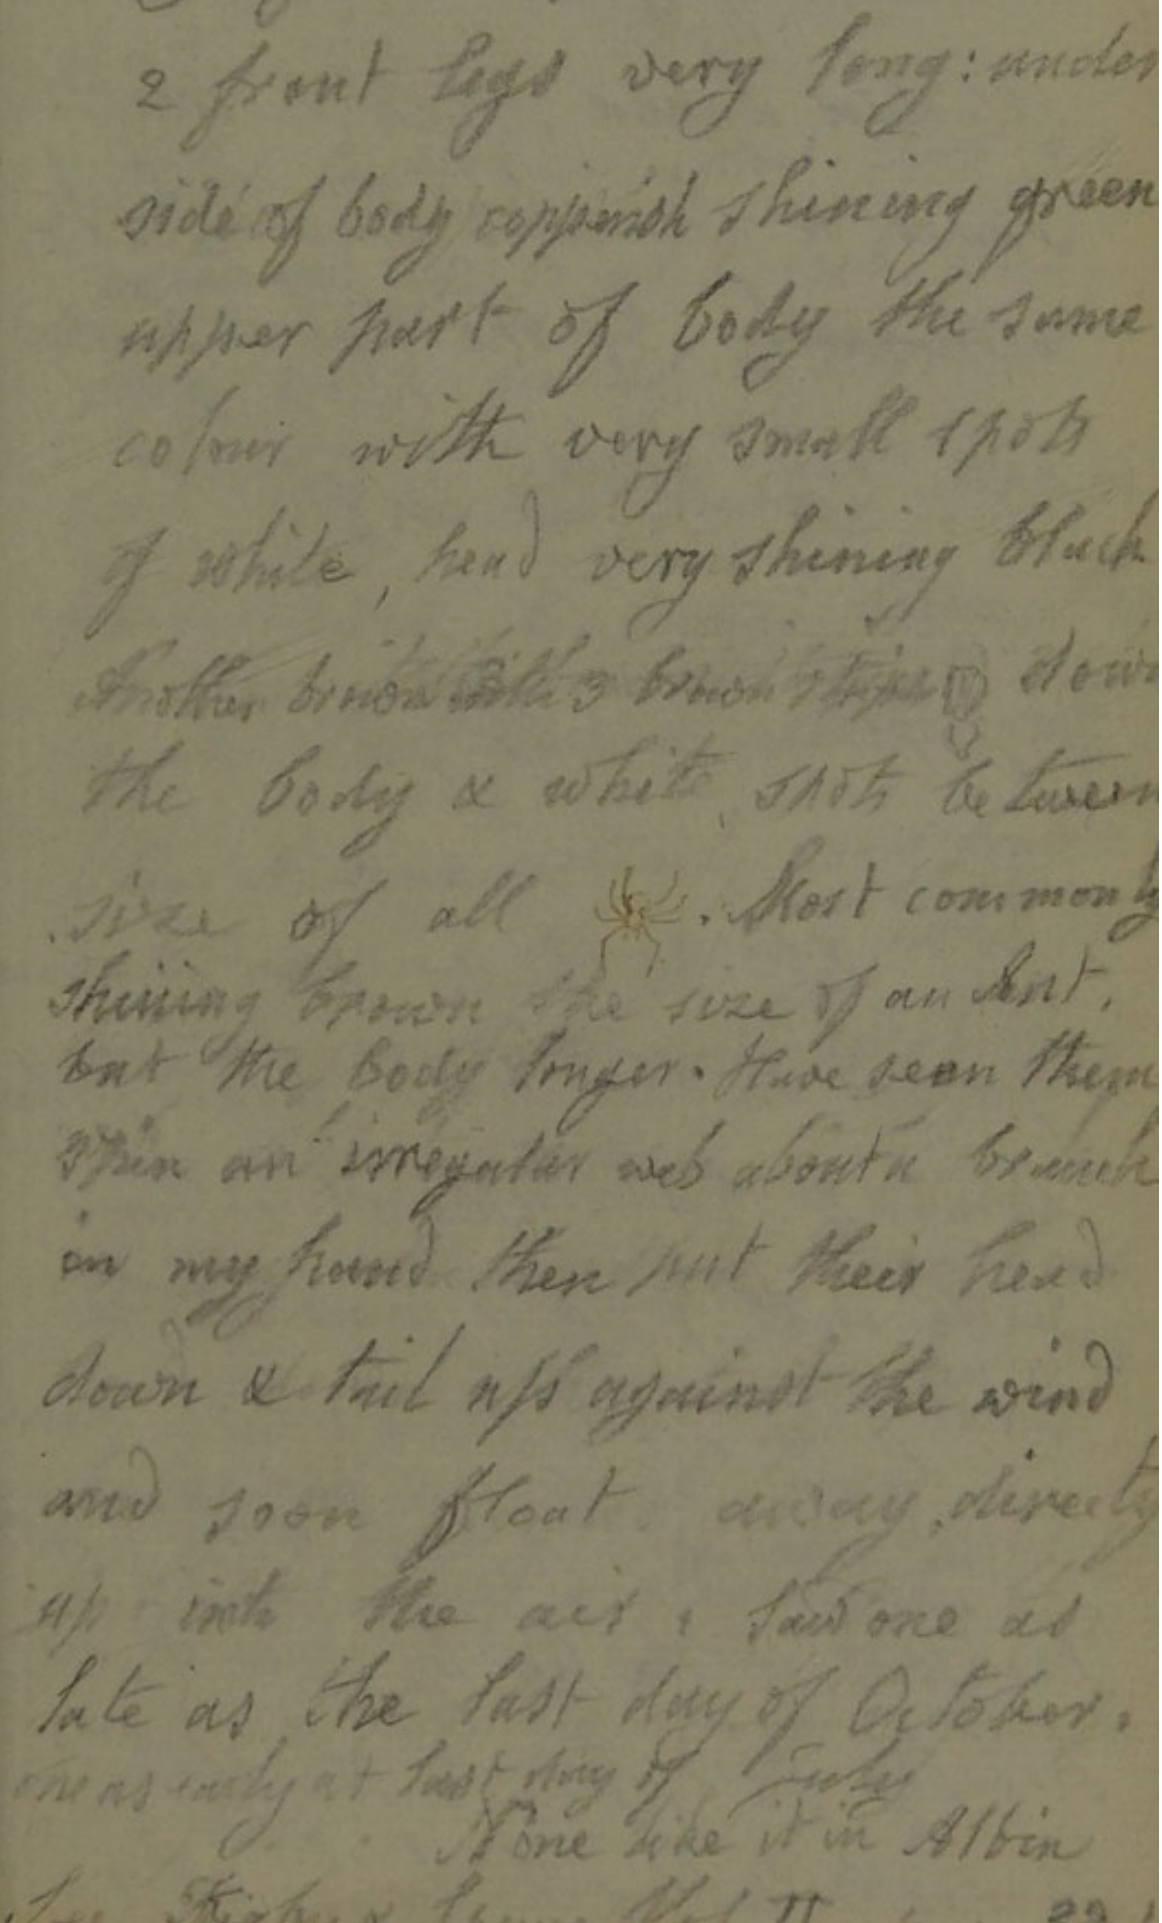 2 front legs very long: under
side of body copperish shining green
upper part of body the same
colour with very small spots
of white, head very shining black
Another brown with 3 brown stripes down
the body & white spots between
size of all . Most commonly
shining brown the size of an Ant,
but the body longer. Have seen them
spin an irregular web about a branch
in my hand then put their head
down & tail up against the wind
and soon float away directly
up into the air. Saw one as
late as the last day of October.
one as early at last day of July
None like it in Albin
Vol II